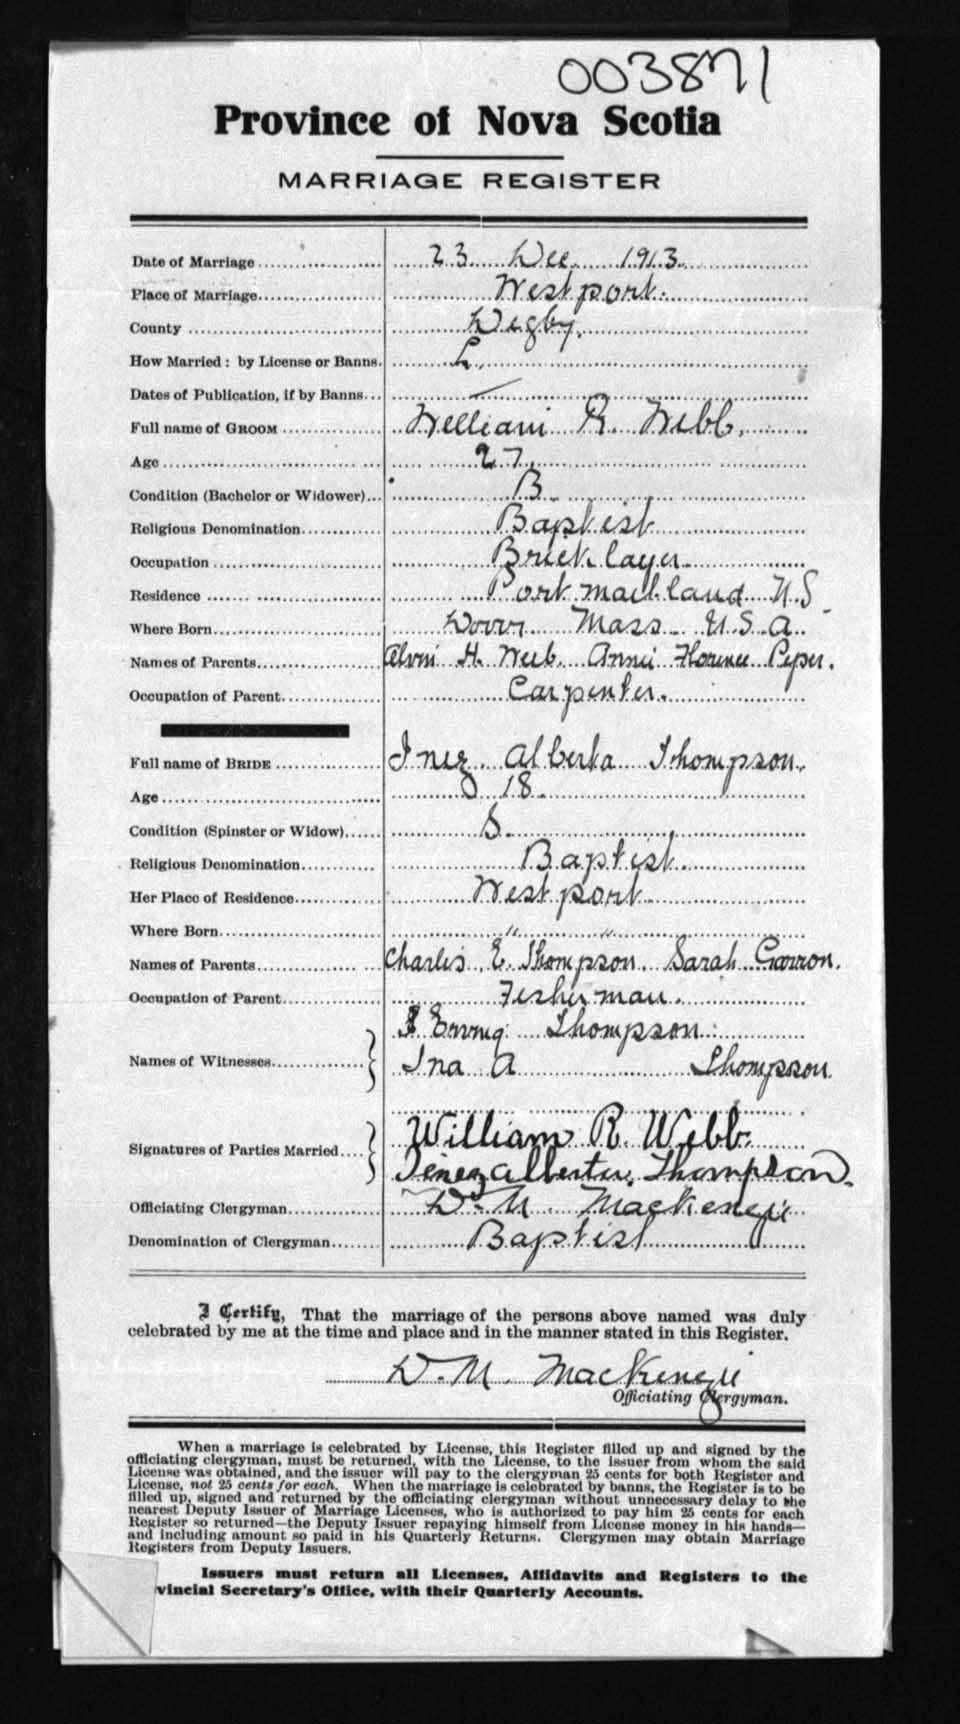 003871
Province of Nova Scotia
MARRIAGE REGISTER
Date of Marriage 23 Dec 1913
Place of Marriage Westport.
County Digby.
How Married: by License or Banns. L.
Dates of Publication, if by Banns —
Full name of GROOM William R. Webb.
Age 27.
Condition (Bachelor or Widower) B
Religious Denomination Baptist
Occupation Brick layer
Residence Port Maitland N.S
Where Born Dover Mass U.S.A.
Names of Parents Alvin H. Webb. Annie Florence Piper.
Occupation of Parent Carpenter.
Full name of BRIDE Inez Alberta Thompson.
Age 18.
Condition (Spinster or Widow) S.
Religious Denomination Baptist.
Her Place of Residence Westport
Where Born " "
Names of Parents Charles E. Thompson. Sarah
Occupation of Parent Fisherman.
Thompson
Names of Witnesses Ina A Thompson
William R. Webb.
Signatures of Parties Married Alberta Thompson.
Officiating Clergyman D. M. MacKenzie
Denomination of Clergyman Baptist
I Certify, That the marriage of the persons above named was duly
celebrated by me at the time and place and in the manner stated in this Register.
D. M. MacKenzie
Officiating Clergyman.
When a marriage is celebrated by License, this Register filled up and signed by the
officiating clergyman, must be returned, with the License, to the issuer from whom the said
License was obtained, and the issuer will pay to the clergyman 25 cents for both Register and
License, not 25 cents for each. When the marriage is celebrated by banns, the Register is to be
filled up, signed and returned by the officiating clergyman without unnecessary delay to the
nearest Deputy Issuer of Marriage Licenses, who is authorized to pay him 25 cents for each
Register so returned—the Deputy Issuer repaying himself from License money in his hands—
and including amount so paid in his Quarterly Returns. Clergymen may obtain Marriage
Registers from Deputy Issuers.
Issuers must return all Licenses, Affidavits and Registers to the
vincial Secretary's Office, with their Quarterly Accounts.